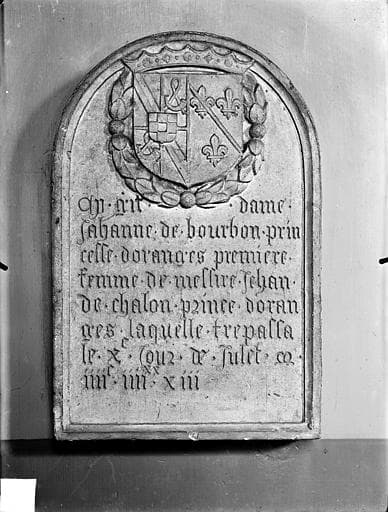 Cy · git · dame ·
Jahanne · de · bourbon · prin
cesse · doranges · premiere ·
femme · de · messire · Jehan ·
de · chalon · prince · doran
ges · laquelle · trepassa
le · xᵉ · Jour · de · Julet · m ·
iiiiᶜ · iiiiˣˣ · xiii